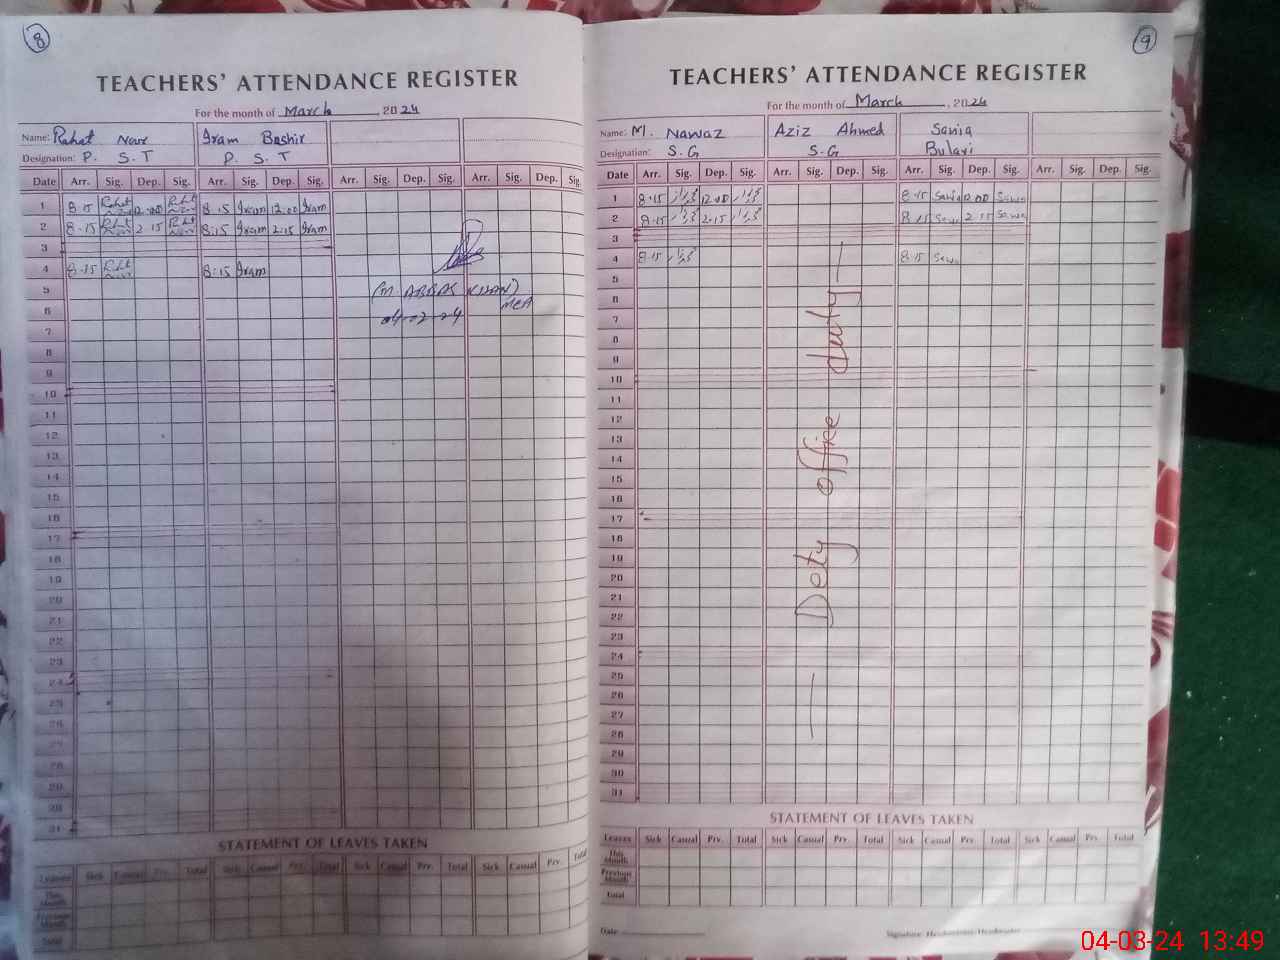 8
TEACHERS' ATTENDANCE REGISTER
For the month of March, 2024
Name: Rahat Noor Iram Bashir
Designation: P. S. T P. S. T
Date Arr. Sig. Dep. Sig. Arr. Sig. Dep. Sig. Arr. Sig. Dep. Sig. Arr. Sig. Dep. Sig.
1 8.15 Rahat 12.00 Rahat 8.15 Iram 12:00 Iram
2 8.15 Rahat 2.15 Rahat 8:15 Iram 2:15 Iram
3
4 8.15 Rahat 8:15 Iram
5 (M ABBAS KHAN)
6 MEA
04-02-24
7
8
9
10
11
12
13
14
15
16
17
18
19
20
21
22
23
24
25
26
27
28
29
30
31
STATEMENT OF LEAVES TAKEN
Leaves Sick Casual Prv. Total Sick Casual Prv. Total Sick Casual Prv. Total Sick Casual Prv. Total
This Month
Previous Month
Total
9
TEACHERS' ATTENDANCE REGISTER
For the month of March, 2024
Name: M. Nawaz Aziz Ahmed Sania
Designation: S.G S.G Bulari
Date Arr. Sig. Dep. Sig. Arr. Sig. Dep. Sig. Arr. Sig. Dep. Sig. Arr. Sig. Dep. Sig.
1 8.15 12.00 8.15 Sania 12.00 Sania
2 8.15 2.15 8.15 Sania 2.15 Sania
3
4 8.15 8.15 Sania
5
6
7
8
9
10
11
12
13
14
15
16
17
18
19
20
21
22
23
24
25
26
27
28
29
30
31
Dety office duty
STATEMENT OF LEAVES TAKEN
Leaves Sick Casual Prv. Total Sick Casual Prv. Total Sick Casual Prv. Total Sick Casual Prv. Total
This Month
Previous Month
Total
Date Signature Headmistress/Headmaster
04-03-24 13:49